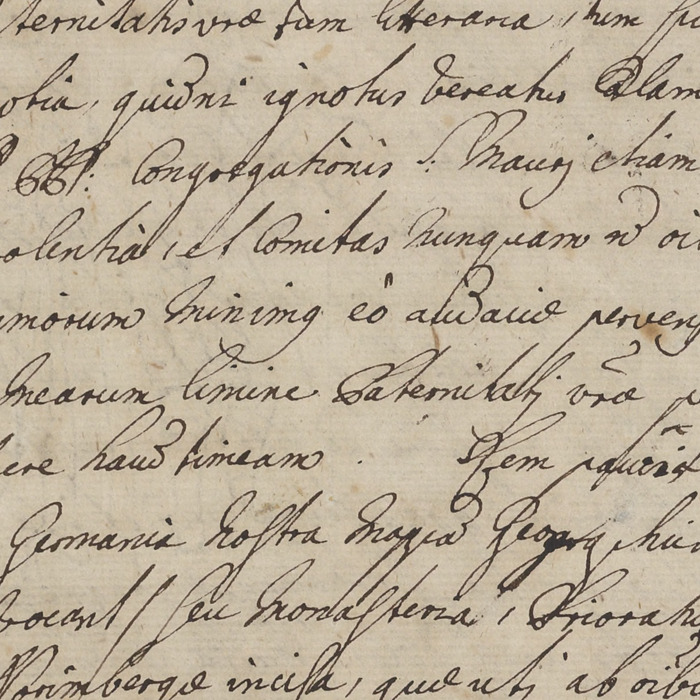 ternitatis vrae tum litteraria, tum
otia, quidni ignotus vereatur
Congregationis S. Maurj etiam
olentia, et Comitas nunquam
imorum minimq eò audaciae perven
mearum limine Paternitatj vrae
ere haud timeam.
Germania nostra mappa Geogr
vocant / seu Monasteria, Priorat
Norimbergae incisa, quae utj ab